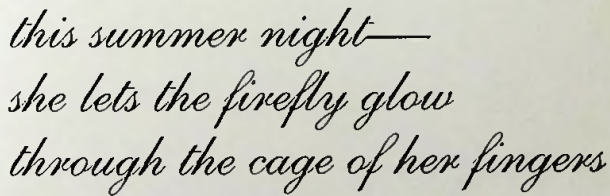 this summer night—
she lets the firefly glow
through the cage of her fingers